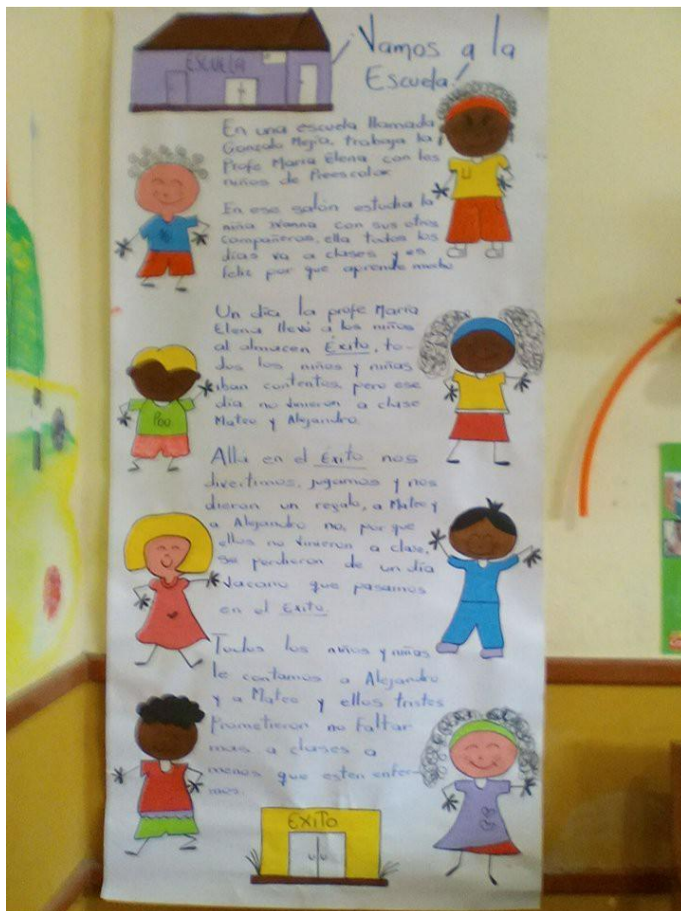 ESCUELA
Vamos a la
Escuela!
En una escuela llamada
Gonzalo Mejía, trabaja la
Profe María Elena con los
niños de Preescolar
En ese salón estudia la
niña Ivanna con sus otros
compañeros, ella todos los
días va a clases y es
feliz por que aprende mucho
Un día la profe María
Elena llevó a los niños
al almacen Éxito, to-
dos los niños y niñas
iban contentos, pero ese
día no vinieron a clase
Mateo y Alejandro.
Alla en el Éxito nos
divertimos, jugamos y nos
dieron un regalo, a Mateo y
a Alejandro no, por que
ellos no vinieron a clase,
se perdieron de un día
vacano que pasamos
en el Exito.
Todos los niños y niñas
le contamos a Alejandro
y a Mateo y ellos tristes
Prometieron no faltar
mas a clases a
menos que esten enfer-
mos.
EXITO